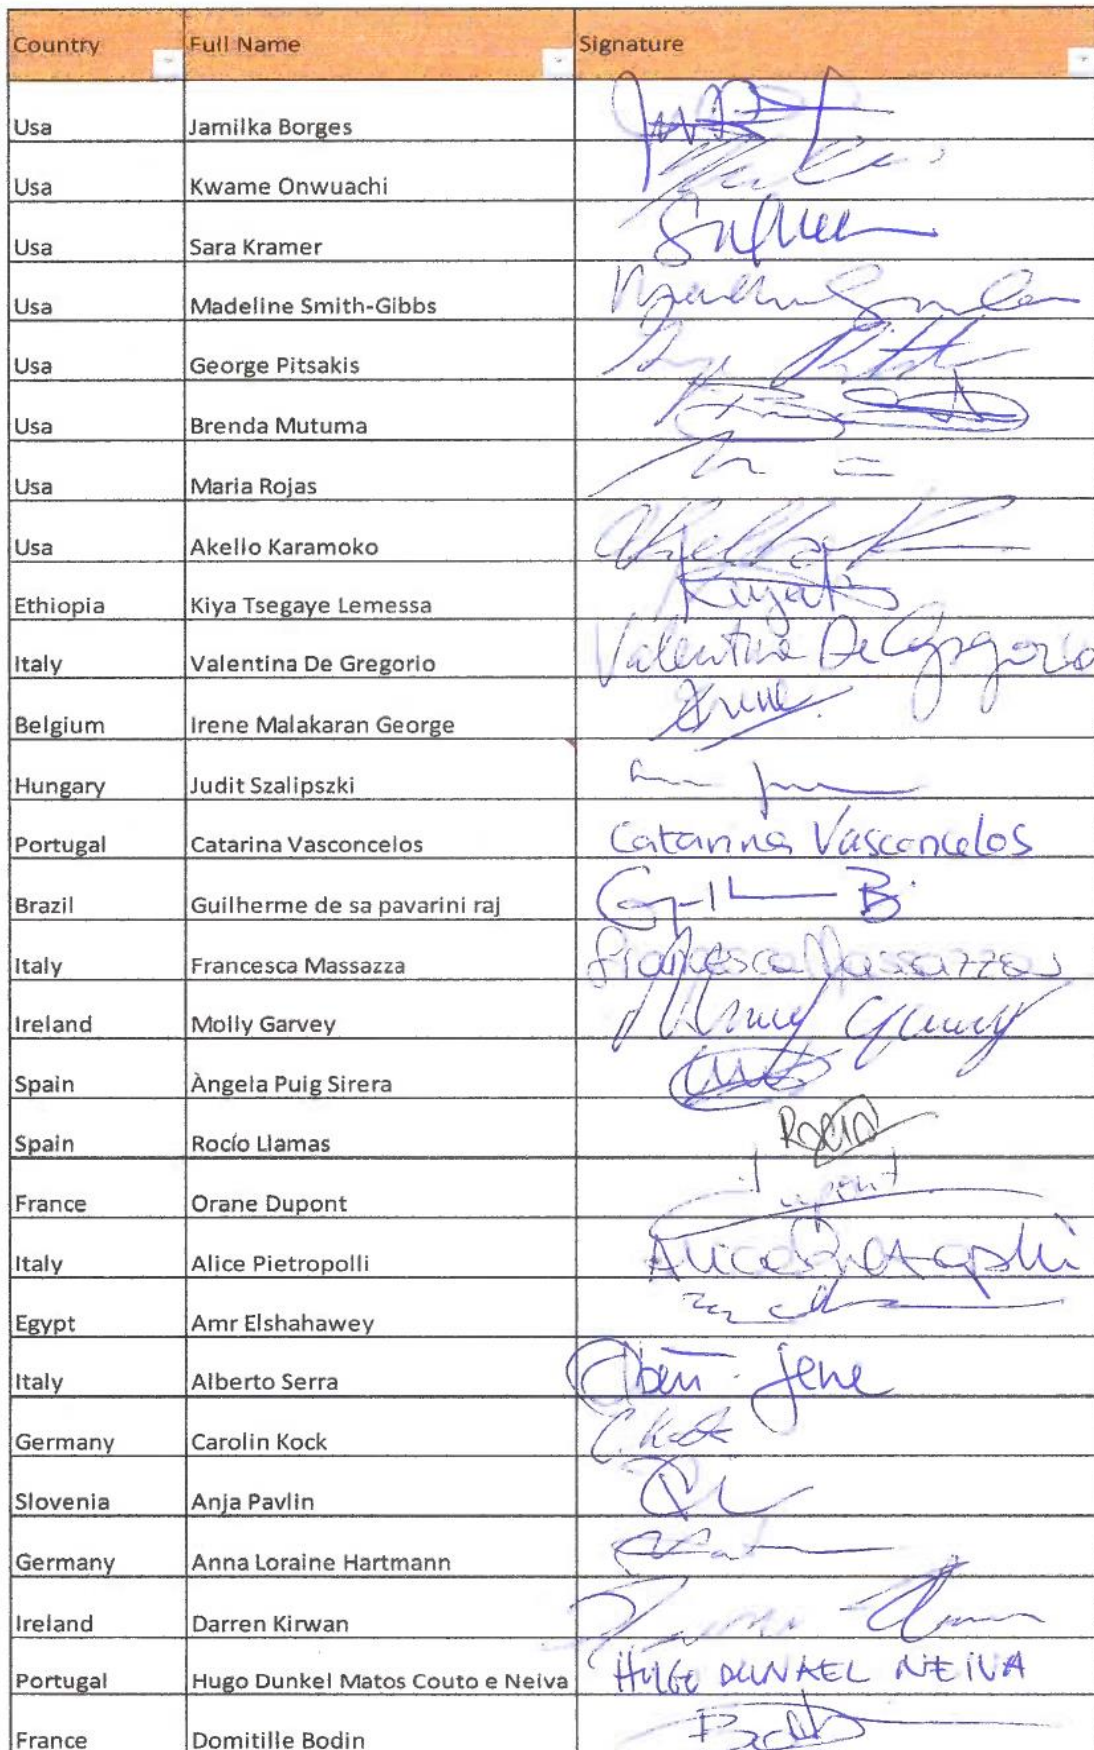 Country Full Name Signature
Usa Jamilka Borges
Usa Kwame Onwuachi
Usa Sara Kramer
Usa Madeline Smith-Gibbs
Usa George Pitsakis
Usa Brenda Mutuma
Usa Maria Rojas
Usa Akello Karamoko
Ethiopia Kiya Tsegaye Lemessa
Italy Valentina De Gregorio Valentina De Gregorio
Belgium Irene Malakaran George Irene
Hungary Judit Szalipszki
Portugal Catarina Vasconcelos Catarina Vasconcelos
Brazil Guilherme de sa pavarini raj
Italy Francesca Massazza Francesca Massazza
Ireland Molly Garvey Molly Garvey
Spain Àngela Puig Sirera
Spain Rocío Llamas Rocío
France Orane Dupont Dupont
Italy Alice Pietropolli Alice Pietropolli
Egypt Amr Elshahawey
Italy Alberto Serra
Germany Carolin Kock C. Kock
Slovenia Anja Pavlin
Germany Anna Loraine Hartmann
Ireland Darren Kirwan
Portugal Hugo Dunkel Matos Couto e Neiva HUGO DUNKEL NEIVA
France Domitille Bodin